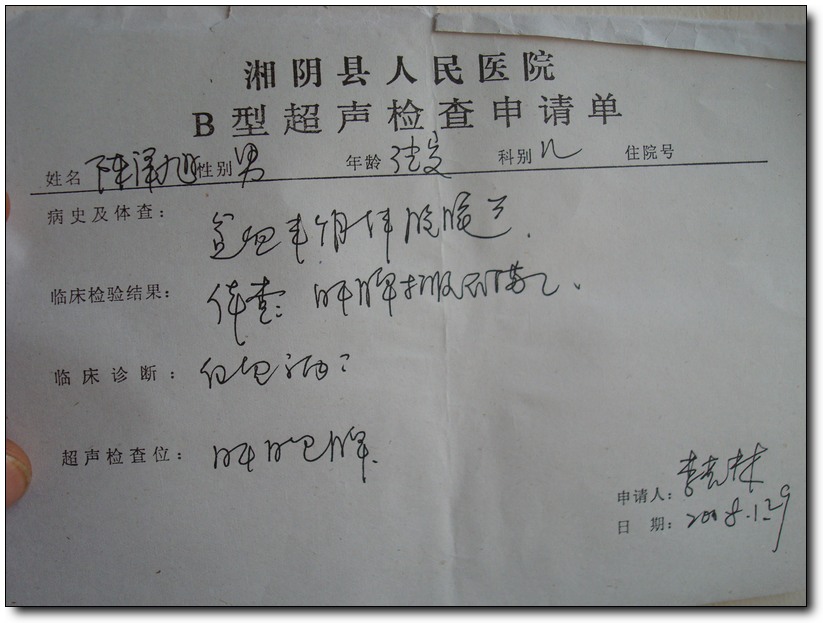 湘阴县人民医院
B型超声检查申请单
姓名 陈泽旭 性别 男 年龄 岁 科别 儿 住院号
病史及体查： 半月伴
临床检验结果： 体查： 肝脾
临床诊断： 白血病？
超声检查位： 肝胆脾.
申请人： 李 林
日期： 2008.1.29